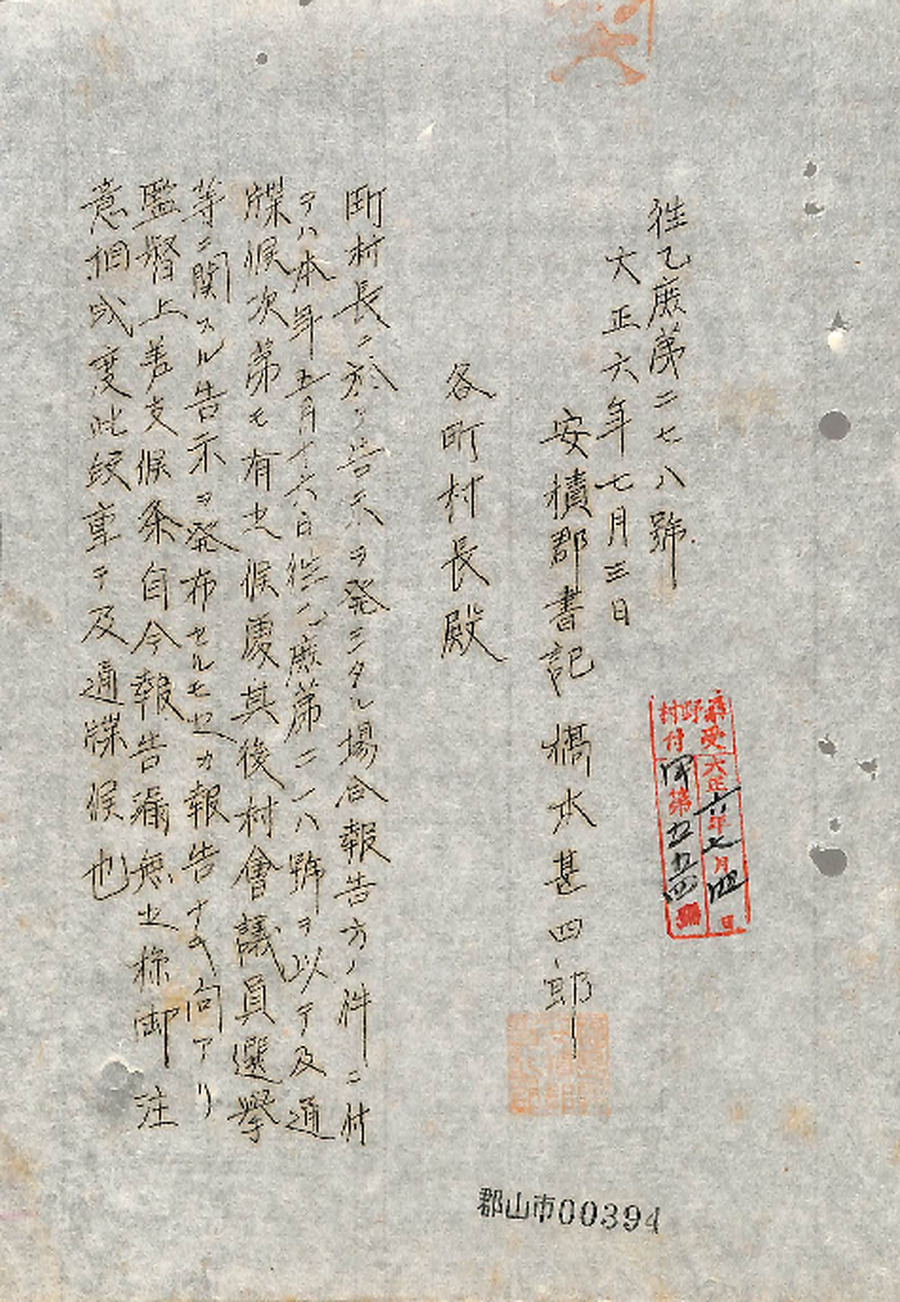 往乙庶第二七八號
大正六年七月三日
安積郡書記 橋本甚四郎
各町村長殿
町村長ニ於テ告示ヲ発シタル場合報告方ノ件ニ付
テハ本年五月十六日往乙庶第二一八號ヲ以テ及通
牒候次第モ有之候處其後村會議員選挙
等ニ関スル告示ヲ発布セルモ之カ報告ナキ向アリ
監督上差支候条自今報告漏無之様御注
意相成度此段重テ及通牒候也
村野
受付
大正六年七月四日
甲第五五四號
郡山市00394